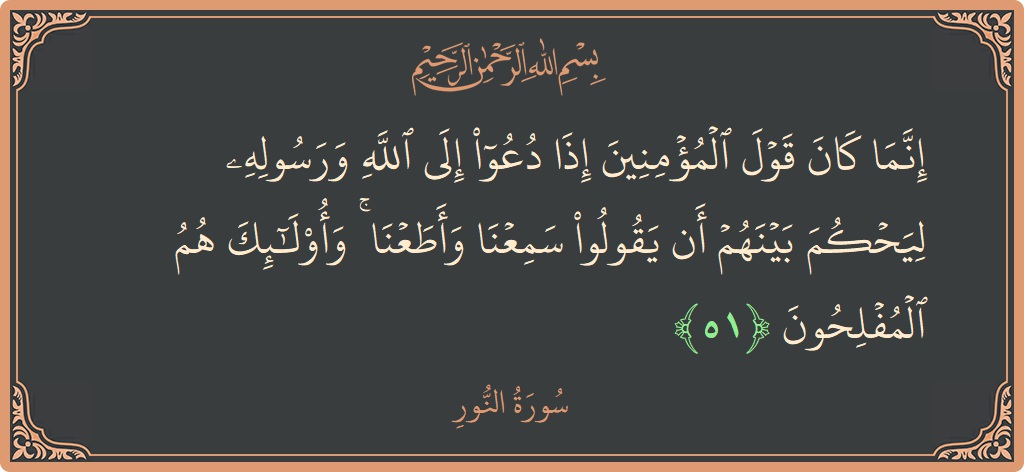 بِسْمِ اللَّهِ الرَّحْمَٰنِ الرَّحِيمِ
إِنَّمَا كَانَ قَوْلَ ٱلْمُؤْمِنِينَ إِذَا دُعُوٓا۟ إِلَى ٱللَّهِ وَرَسُولِهِۦ
لِيَحْكُمَ بَيْنَهُمْ أَن يَقُولُوا۟ سَمِعْنَا وَأَطَعْنَا ۚ وَأُو۟لَـٰٓئِكَ هُمُ
ٱلْمُفْلِحُونَ ﴿٥١﴾
سُورَةُ النُّورِ